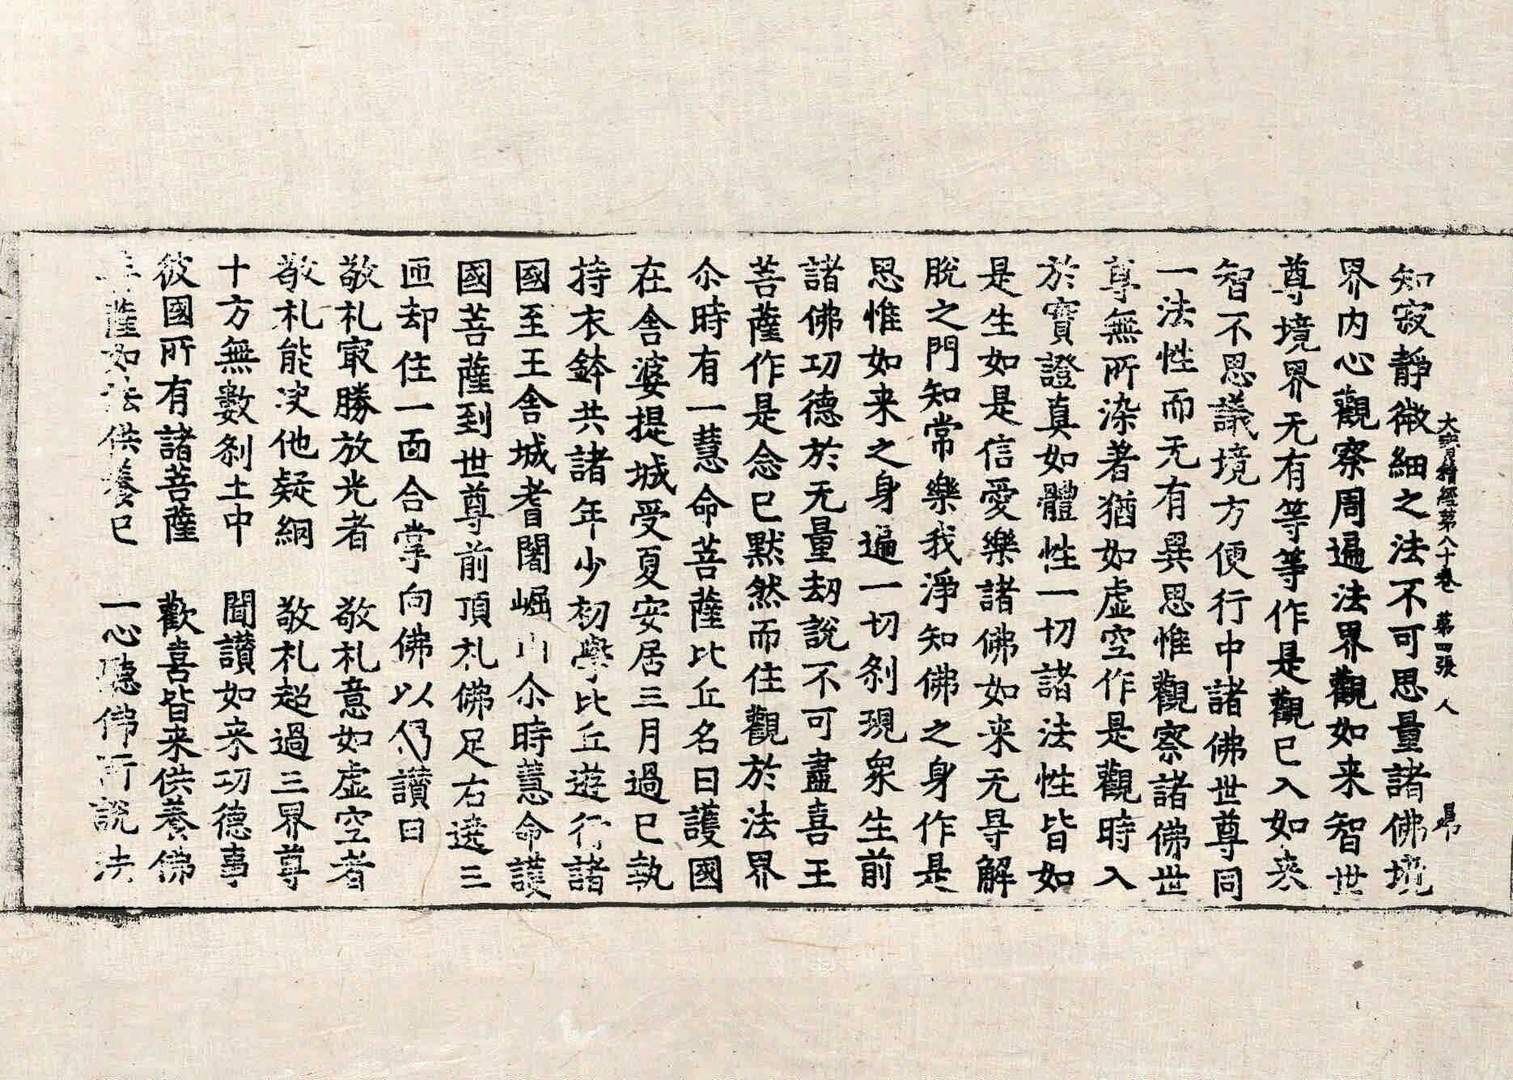 大寶積經第八十卷 第四張 人
知寂靜微細之法不可思量諸佛境
界内心觀察周遍法界觀如来智世
尊境界无有等等作是觀已入如来
智不思議境方便行中諸佛世尊同
一法性而无有異思惟觀察諸佛世
尊無所染著猶如虛空作是觀時入
於實證真如體性一切諸法性皆如
是生如是信愛樂諸佛如来无㝵解
脫之門知常樂我淨知佛之身作是
思惟如来之身遍一切刹現衆生前
諸佛功德於无量劫說不可盡喜王
菩薩作是念已默然而住觀於法界
尒時有一慧命菩薩比丘名曰護國
在舍婆提城受夏安居三月過已執
持衣鉢共諸年少初學比丘遊行諸
國至王舍城耆闍崛山尒時慧命護
國菩薩到世尊前頂礼佛足右遶三
匝却住一面合掌向佛以偈讃曰
敬礼㝡勝放光者 敬礼意如虛空者
敬礼能决他疑網 敬礼超過三界尊
十方無數刹土中 聞讃如来功德事
彼國所有諸菩薩 歡喜皆来供養佛
薩如法供養已 一心聽佛所說法